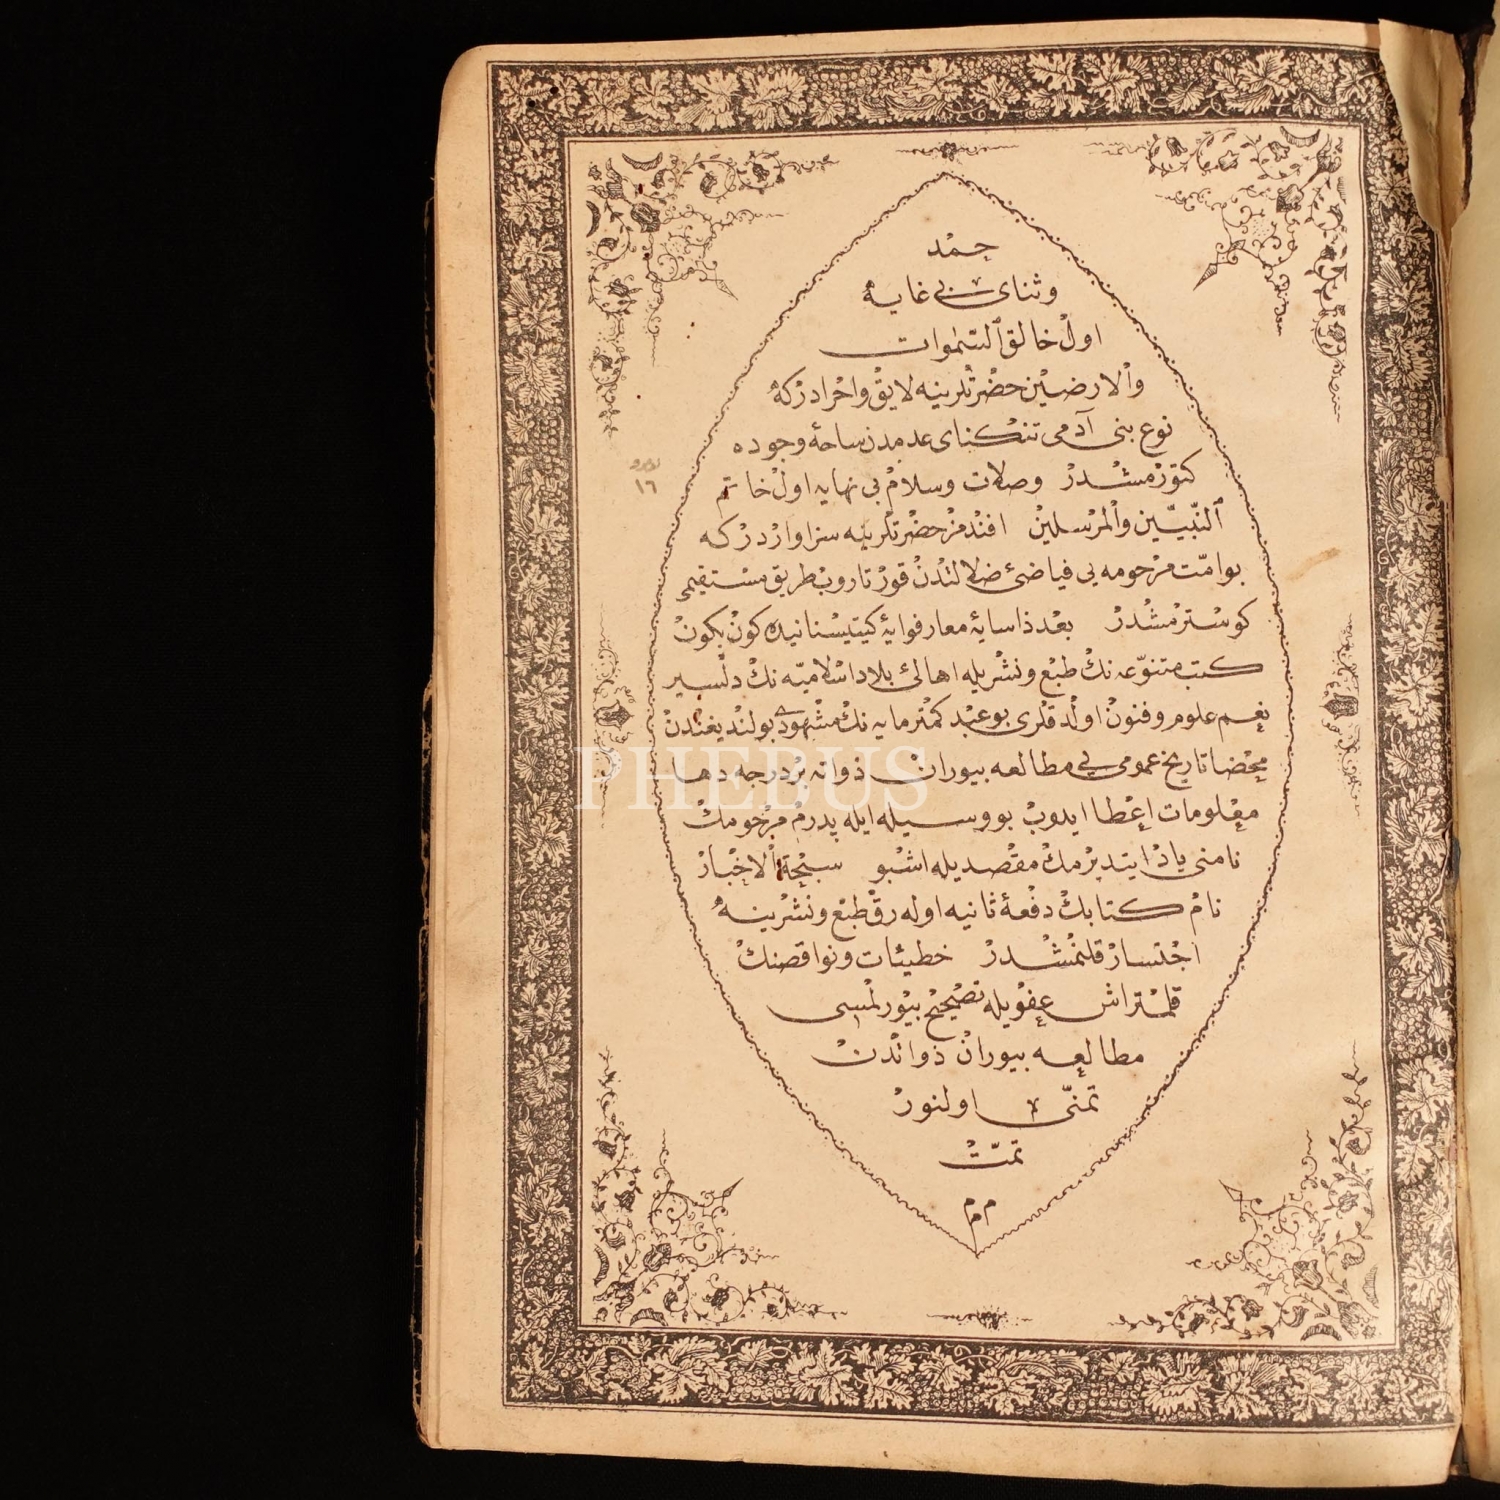 حمد
وثنای بی غایه
اول خالق السموات
والارضین حضرتلرینه لایق واحرادرکه
نوع بنی آدمی تنکنای عدمدن ساحۀ وجوده
کتورمشدر وصلات وسلام بی نهایه اول خاتم
النبیّین والمرسلین افندمز حضرتلرینه سزاواردرکه
بو امّت مرحومه یی فیافئ ضلالتدن قورتاروب طریق مستقیمی
کوسترمشدر بعده ذاسایۀ معارفوایۀ کیتیستانیده کون بکون
کتب متنوّعه نك طبع ونشریله اهالئ بلاد اسلامیّه نك دلسیر
نعم علوم وفنون اولدقلری بو عبد کمترمایه نك مشهودی بولندیغندن
محضا تاریخ عمومی یی مطالعه بیوران ذواته بر درجه دها
معلومات اعطا ایدوب بو وسیله ایله پدرم مرحومك
نامنی یاد ایتدیرمك مقصدیله اشبو سبحة الاخبار
نام کتابك دفعۀ ثانیه اوله رق طبع ونشرینه
اجتسار قلنمشدر خطیئات ونواقصنك
قلمتراش عفویله تصحیح بیورلمسی
مطالعه بیوران ذواتدن
تمنّی اولنور
تمّت
م م م
١٦
PHEBUS